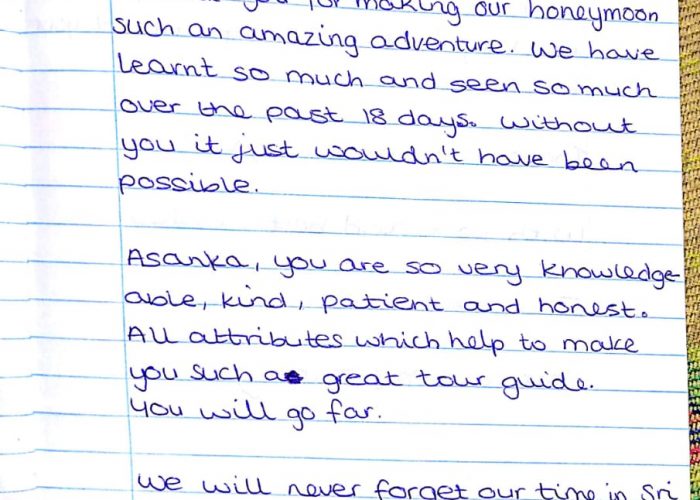 you for making our honeymoon
such an amazing adventure. We have
learnt so much and seen so much
over the past 18 days. Without
you it just wouldn't have been
possible.
Asanka, you are so very knowledge-
able, kind, patient and honest.
All attributes which help to make
you such a great tour guide.
You will go far.
We will never forget our time in Sri